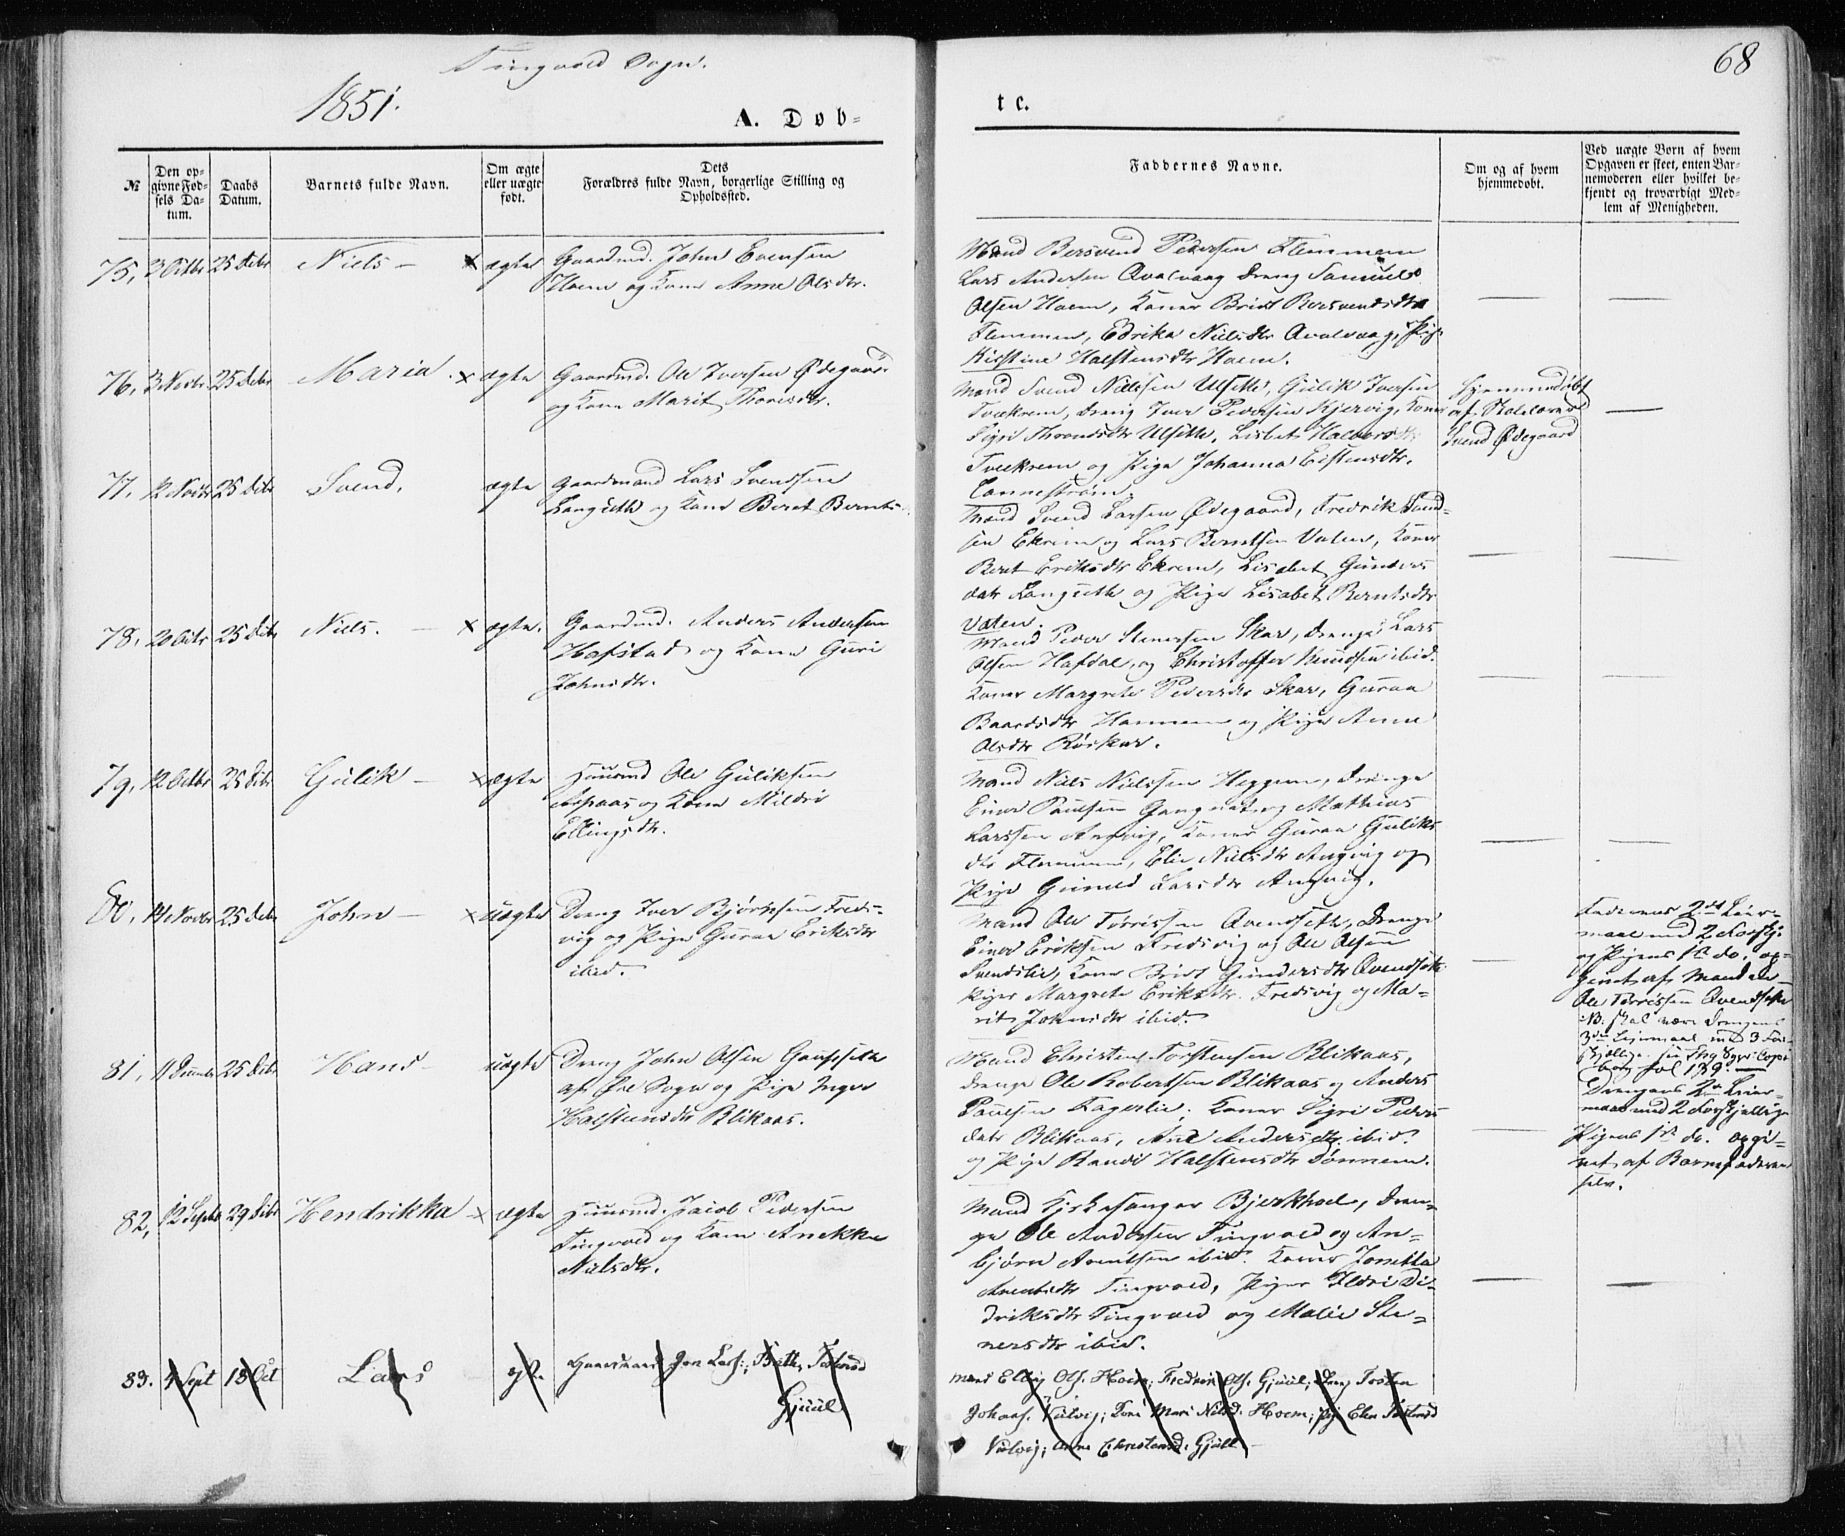 Tingvold Sogn.
1851.
68
A. Døb-
te.
№
Den op-
givne Fød-
sels Da-
tum.
Daabs
Datum.
Barnets fulde Navn.
Om ægte
eller uægte
født.
Dets
Forældres fulde Navn, borgerlige Stilling og
Opholdssted.
Faddernes Navne.
Om og af hvem
hjemmedøbt.
Ved uægte Børn af hvem
Opgaven er skeet, enten Bar-
nemoderen eller hvilket be-
kjendt og troværdigt Med-
lem af Menigheden.
75, 3 Octbr 25 Debr Niels – × ægte
Gaardmd. John Evensen
Hoem og Kone Anne Olsdtr.
Mænd Bersvend Pedersen Flemmem
Lars Andersen Qvalvaag Dreng Samuel
Olsen Hoem, Koner Brit Bersvendsdtr
Flemmem, Edrika Nielsdtr Qvalvaag, Pig:
Kirstine Halstensdtr Hoem.
76, 3 Novbr 25 Debr Maria. × ægte
Gaardmd. Ole Iversen Ødegaard
og Kone Marit Thoresdtr.
Mænd Svend Nielsen Ulseth, Gulik Iversen
Tvekrem, Dreng Iver Pedersen Kjervig, Koner
Sigri Throndsdtr Ulseth, Lisbet Halvorsdtr
Tveekrem og Pige Johanna Eistensdtr.
Cannestrøm.
Hjemmedøbt
af Skolelærer
Svend Ødegaard
77, 12 Novbr 25 Debr Svend, ægte
Gaardmand Lars Svendsen
Langseth og Kone Beret Bernts-
Mænd Svend Larsen Ødegaard, Fredrik Svend-
sen Ekrem og Lars Berntsen Valen, Koner
Beret Eriksdtr Ekrem, Lisabet Gunders
datr Langseth og Pige Lisabet Berntsdtr
Valen.
78, 20 Octbr 25 Debr Niels. – × ægte.
Gaardmd. Anders Andersen
Hafstad og Kone Guri
Johnsdtr.
Mænd Peder Stenersen Skar, Drenge Lars
Olsen Hafdal, og Christoffer Knudsen ibid.
Koner Margrete Pedersdtr Skar, Guraa
Baardsdtr Hammem og Pige Anne
Olsdtr Röskar.
79, 12 Octbr 25 Debr Gulik – × ægte
Huusmd Ole Guliksen
Aspaas og Kone Mildri
Ellingsdtr.
Mænd Niels Nielsen Heggem, Drenge
Einer Paulsen Gangnat og Mathias
Larssen Angvig, Koner Guraa Guliks
dtr Flemmem, Elie Nielsdtr Angvig og
Pige Gunild Larsdtr Angvig.
80, 14 Novbr 25 Debr John – × uægte
Dreng Iver Bjørnsen Freds-
vig og Pige Guraa Eriksdtr
ibid.
Mænd Ole Tørrissen Qvendseth, Drenge
Einer Eriksen Fredsvig og Ole Olsen
Svendslie, Kone Brit Gundersdtr Qvendseth
Piger Margrete Eriksdtr. Fredsvig og Ma-
rit Johnsdtr ibid.
Faderens 2det Leier-
maal med 2 Forskj:
og Pigens 1te do. op-
givet af Manden
Ole Tørrissen Qvendseth
NB. skal være Drengens
3die Leiermaal med 3 For-
skjellige
fol 189.
81, 11 Decembr 25 Debr Hans – uægte
Dreng John Olsen Gaupseth
af Øre Sogn og Pige Inger
Halstensdtr Blikaas.
Mænd Christen Torstensen Blikaas,
Drenge Ole Robertsen Blikaas og Anders
Paulsen Fagerlie, Koner Sigri Peders
datr Blikaas, Ane Andersdtr. ibid.
og Pige Randi Halstensdtr Dønnem.
Drengens 2det Leier-
maal med 2 Forskjellige
Pigens 1te do. opgi-
vet af Barnefaderen
selv.
82, 12 Septbr 29 Debr Hendrikka × ægte
Huusmd. Jacob Pedersen
Tingvold og Kone Anekke
Nielsdtr.
Mænd Kirkesanger Bjerkhoel, Dren-
ge Ole Andersen Tingvold og An-
bjørn Arentsen ibid. Koner Jonetta
Arentsdtr Tingvold, Piger Ildri Di-
driksdtr Tingvold og Malie Ste-
nersdtr ibid.
83. 4 Sept 18 Oct Lars egt.
Gaardmand Jon Lars:, Berith Tostensd
Gjuul.
Mænd Elling Ols. Hoem; Fredrik Ols. Gjuul; Dreng Tosten
Johans. Vulvig; Kone Mari Nilsd. Hoem; Pige Elen Tostensd
Vulvig; Anne Christensd: Gjuul –